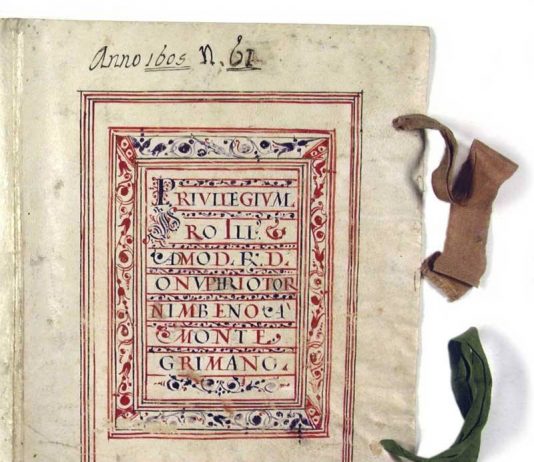 Anno 1605 N. 61
PRIVILEGIVM
PRO ILL. &
ADMOD. R. D.
ONVPHRIO TOR
NIMBENO A
MONTE
GRIMANO.